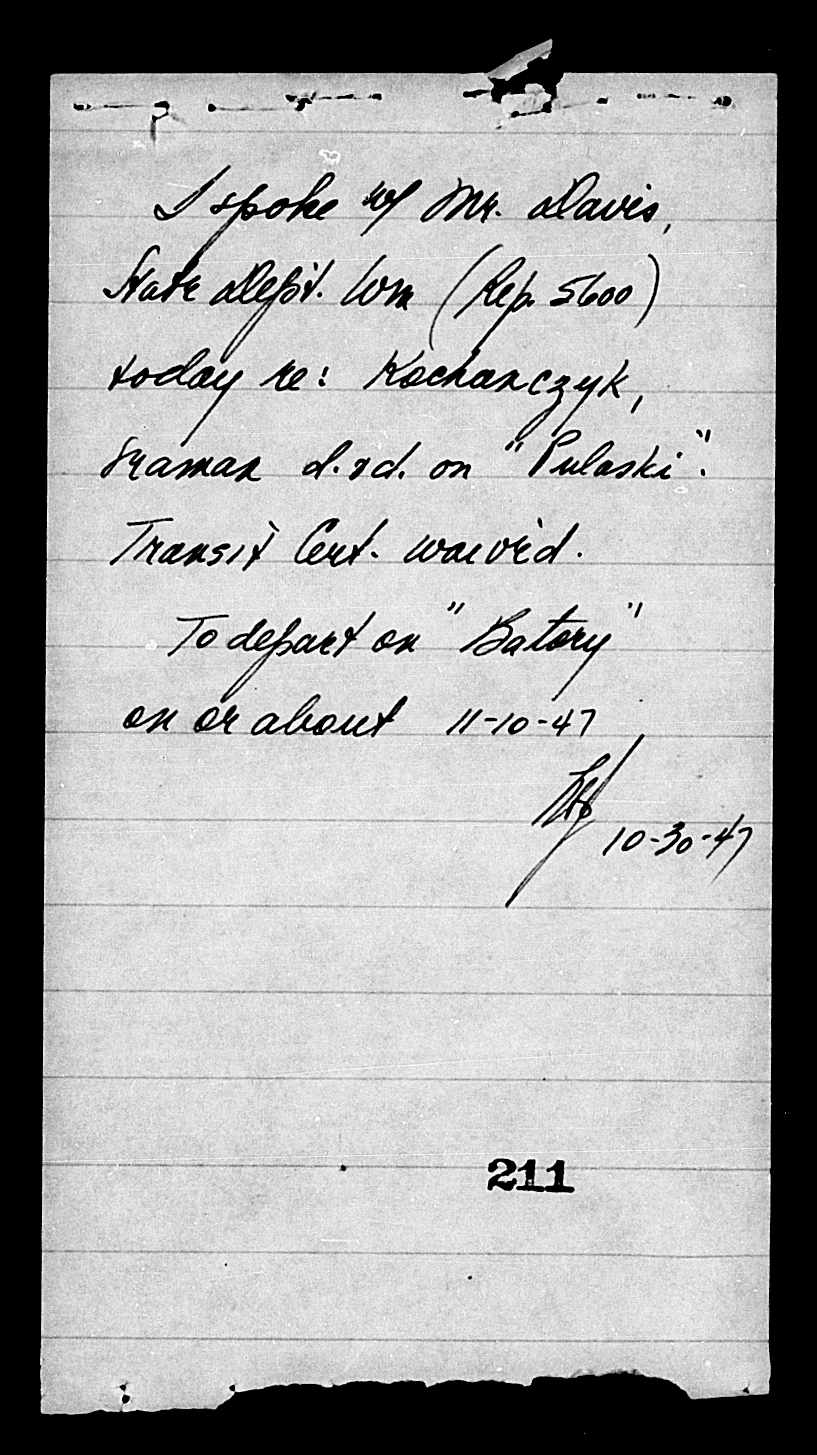 I spoke w/ Mr. Davis,
State Dep't. Wn (Rep. 5600)
today re: Kochanczyk,
seaman d.sd. on "Pulaski".
Transit Cert. waived.
To depart on "Batory"
on or about 11-10-47
10-30-47
211